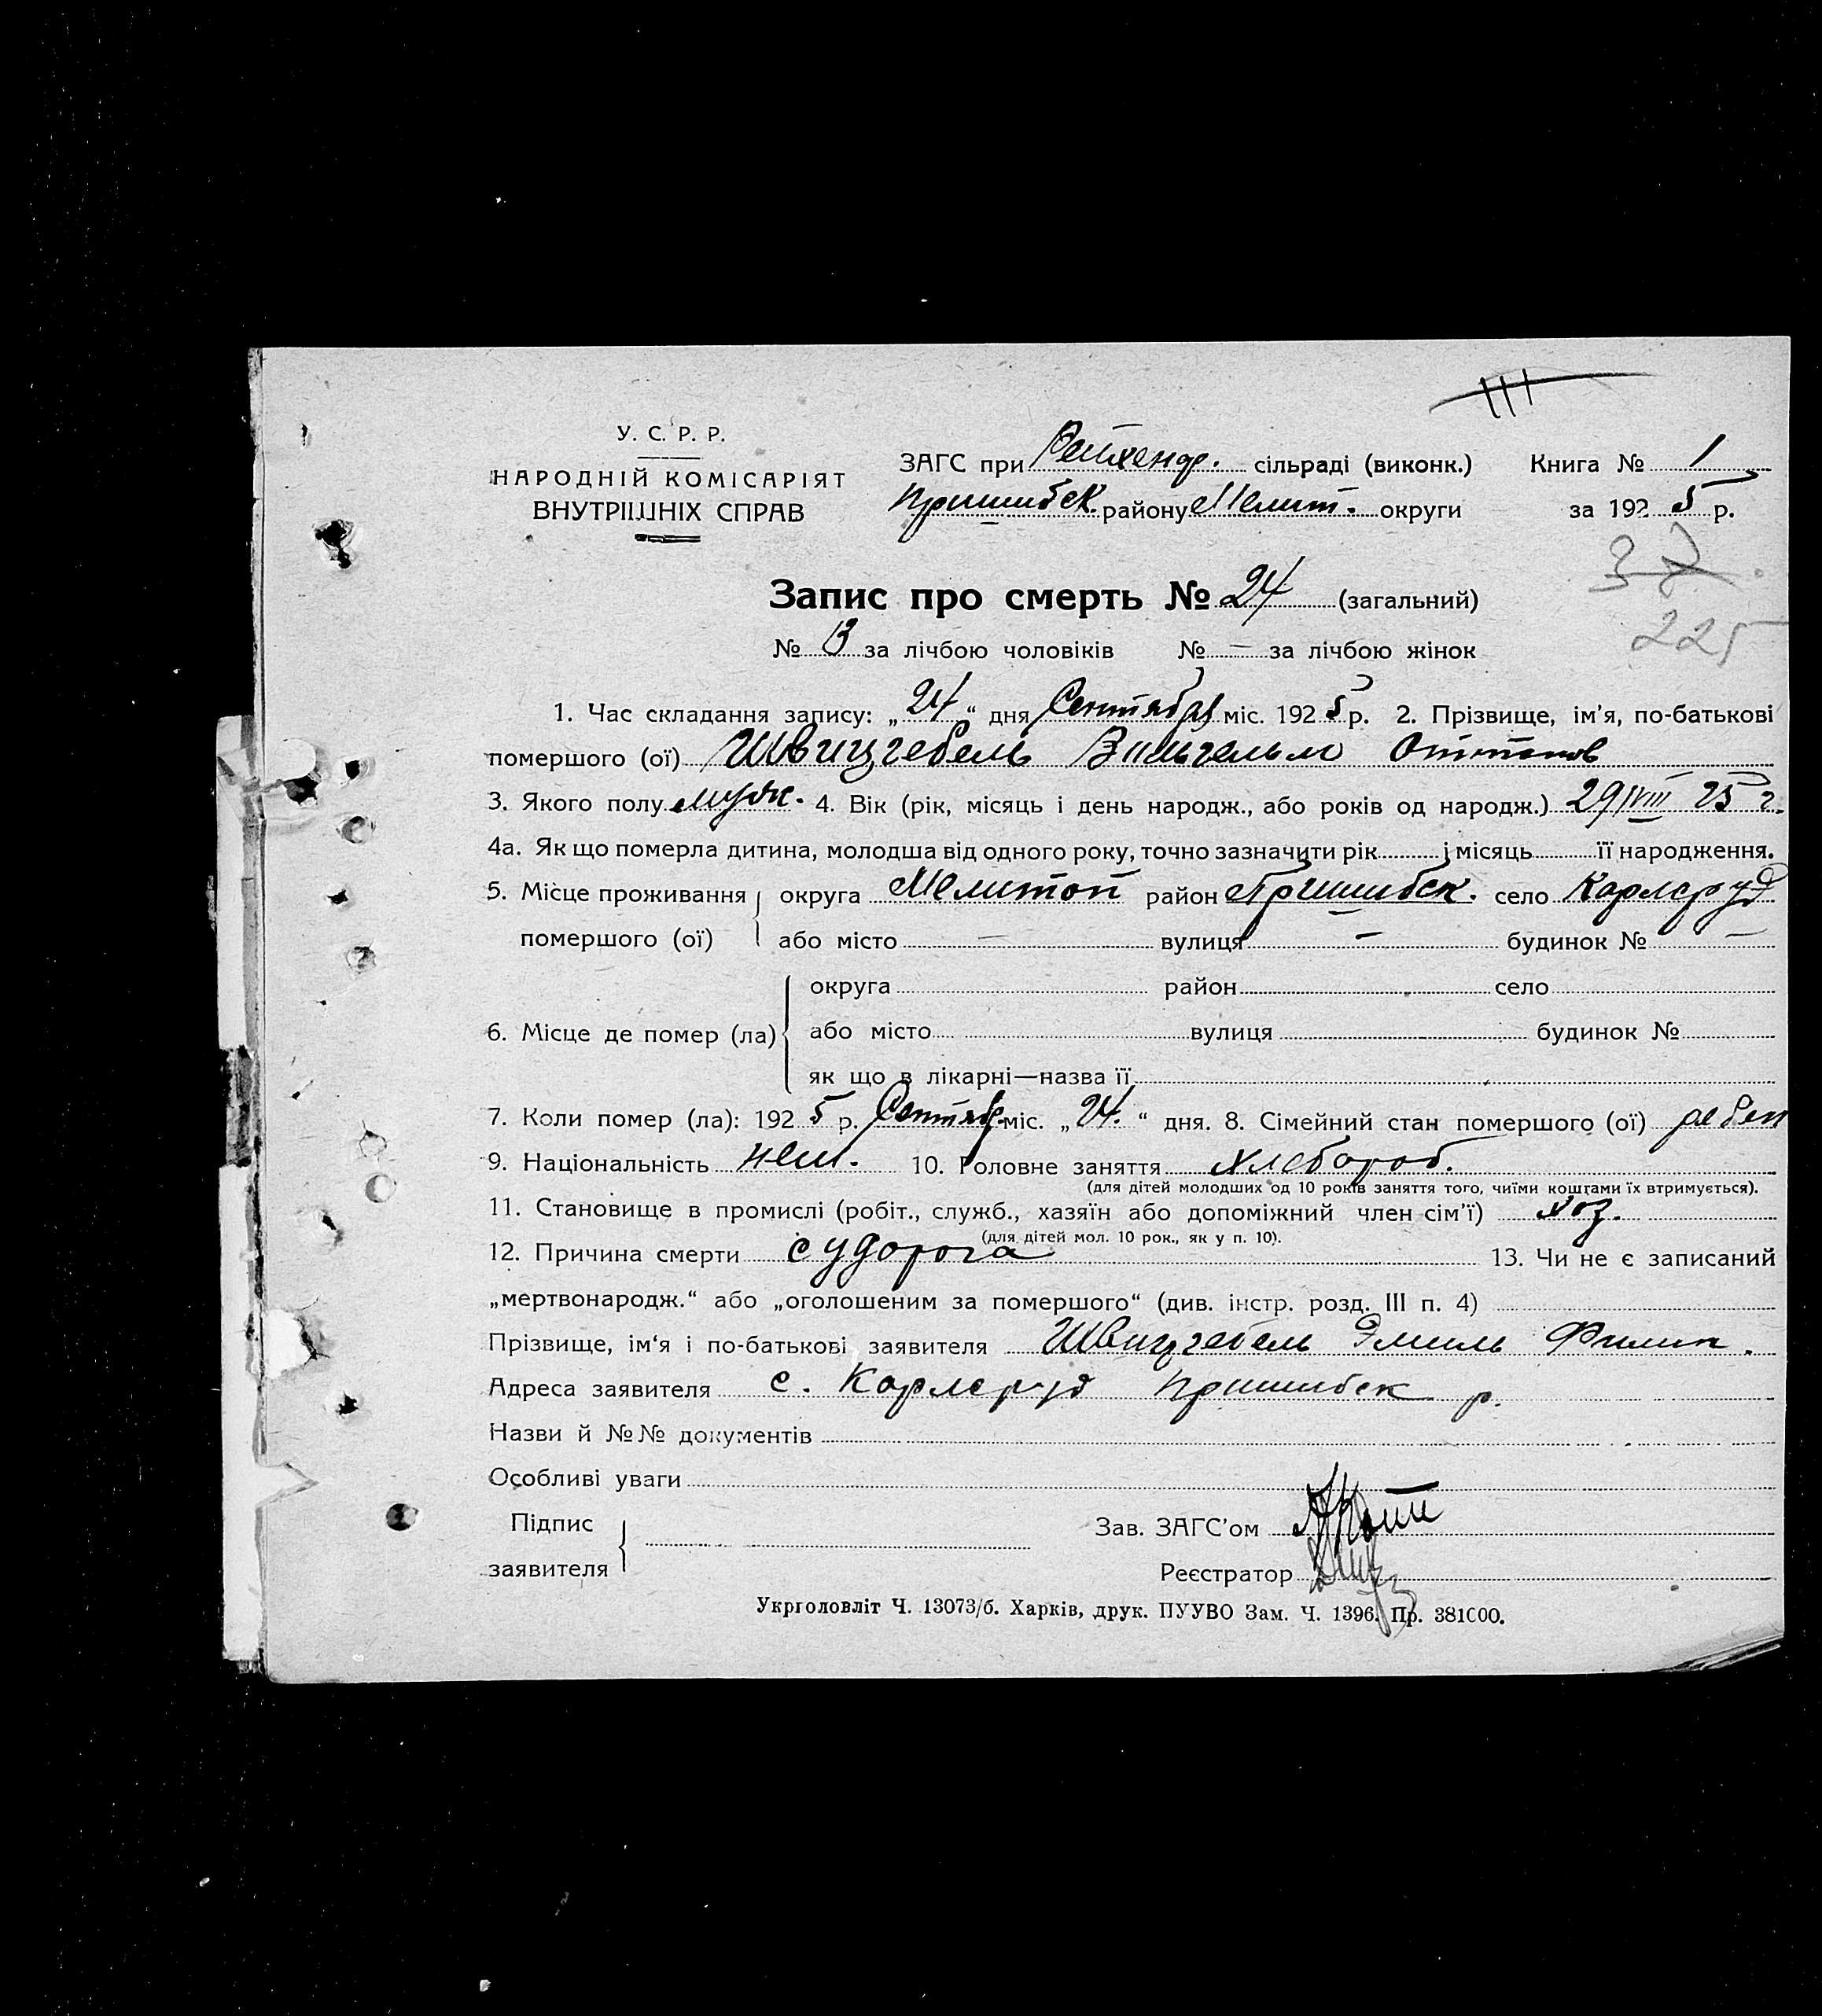 У. С. Р. Р.
НАРОДНІЙ КОМІСАРІЯТ
ВНУТРІШНІХ СПРАВ
ЗАГС при Рейхенф. сільраді (виконк.) Книга № 1
Пришибск. району Мелит. округи за 1925 р.
225
Запис про смерть № 24 (загальний)
№ 13 за лічбою чоловіків № — за лічбою жінок
1. Час складання запису: „24“ дня Сентября міс. 1925 р. 2. Прізвище, ім'я, по-батькові
помершого (ої) Швицгебель Вильгельм Оттонов
3. Якого полу муж. 4. Вік (рік, місяць і день народж., або років од народж.) 29/VIII 25 г.
4а. Як що померла дитина, молодша від одного року, точно зазначити рік і місяць її народження.
5. Місце проживання помершого (ої) округа Мелитоп район Пришибск. село Карлсруд
або місто — вулиця — будинок № —
6. Місце де помер (ла) округа район село
або місто вулиця будинок №
як що в лікарні—назва її
7. Коли помер (ла): 1925 р. Сентяб. міс. „24.“ дня. 8. Сімейний стан помершого (ої) ребен
9. Національність нем. 10. Головне заняття хлебороб.
(для дітей молодших од 10 років заняття того, чиїми коштами їх втримується).
11. Становище в промислі (робіт., служб., хазяїн або допоміжний член сім'ї) хоз.
(для дітей мол. 10 рок., як у п. 10).
12. Причина смерти судорога 13. Чи не є записаний
„мертвонародж.“ або „оголошеним за помершого“ (див. інстр. розд. III п. 4)
Прізвище, ім'я і по-батькові заявителя Швицгебель Эмиль Филип.
Адреса заявителя с. Карлсруд Пришибск р.
Назви й №№ документів
Особливі уваги
Підпис заявителя
Зав. ЗАГС'ом
Реєстратор
Укрголовліт Ч. 13073/б. Харків, друк. ПУУВО Зам. Ч. 1396. Пр. 381000.